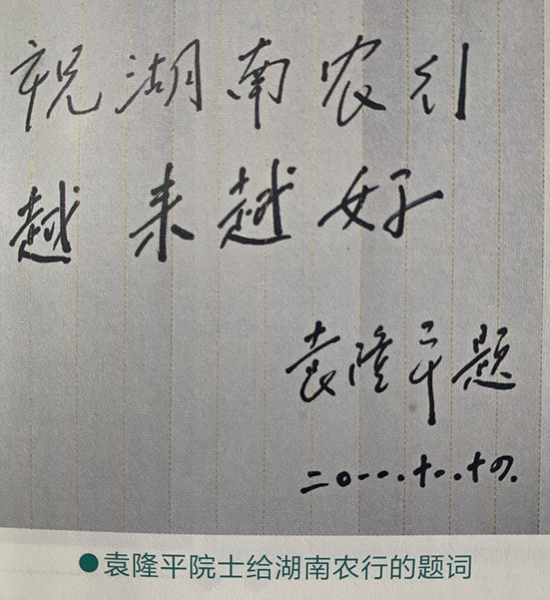 祝湖南农行
越来越好
袁隆平题
二〇一一.十一.十四.
●袁隆平院士给湖南农行的题词